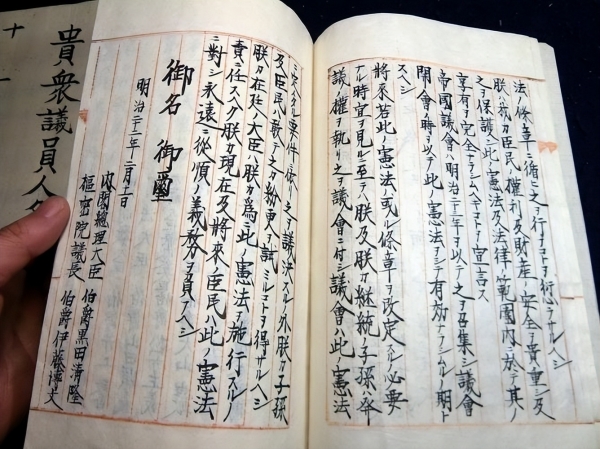 法ノ條章ニ循ヒ之ヲ行フコトヲ愆ラサルヘシ
朕ハ我カ臣民ノ權利及財産ノ安全ヲ貴重シ及
之ヲ保護シ此ノ憲法及法律ノ範圍内ニ於テ其ノ
享有ヲ完全ナラシムヘキコトヲ宣言ス
帝國議會ハ明治二十三年ヲ以テ之ヲ召集シ議會
開會ノ時ヲ以テ此ノ憲法ヲシテ有効ナラシムルノ期ト
スヘシ
將來若此ノ憲法ノ或ル條章ヲ改定スルノ必要
ナル時宜ヲ見ルニ至テハ朕及朕カ繼統ノ子孫ハ發
議權ヲ執リ之ヲ議會ニ付シ議會ハ此ノ憲法
ニ定メタル要件ニ依リ之ヲ議決スルノ外朕カ子孫
及臣民ハ敢テ之カ紛更ヲ試ミルコトヲ得サルヘシ
朕カ在廷ノ大臣ハ朕カ爲ニ此ノ憲法ヲ施行スルノ
責ニ任スヘク朕カ現在及將來ノ臣民ハ此ノ憲法
ニ對シ永遠ニ從順ノ義務ヲ負フヘシ
御名 御璽
明治二十二年二月十一日
内閣總理大臣 伯爵黒田清隆
樞密院議長 伯爵伊藤博文
貴衆議員人
十一